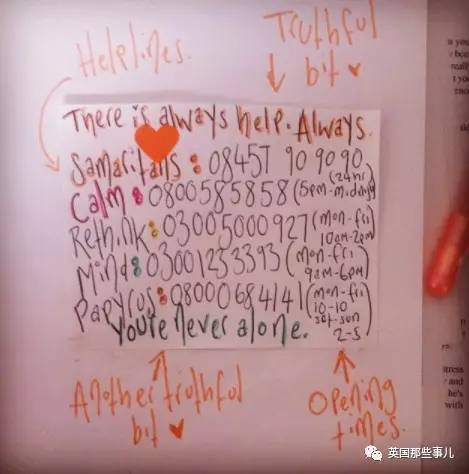 Helplines.
Truthful
bit
There is always help. Always.
Samaritans: 08457 90 90 90
(24hr)
Calm: 0800585858 (5pm-midnight)
Rethink: 03005000927 (mon-fri
10am-2pm)
Mind: 03001233393 (mon-fri
9am-6pm)
Papyrus: 08000684141 (mon-fri
10-10
sat-sun
2-5)
You're never alone.
Another truthful
bit
Opening
times.
stress
and
he's
with
英国那些事儿